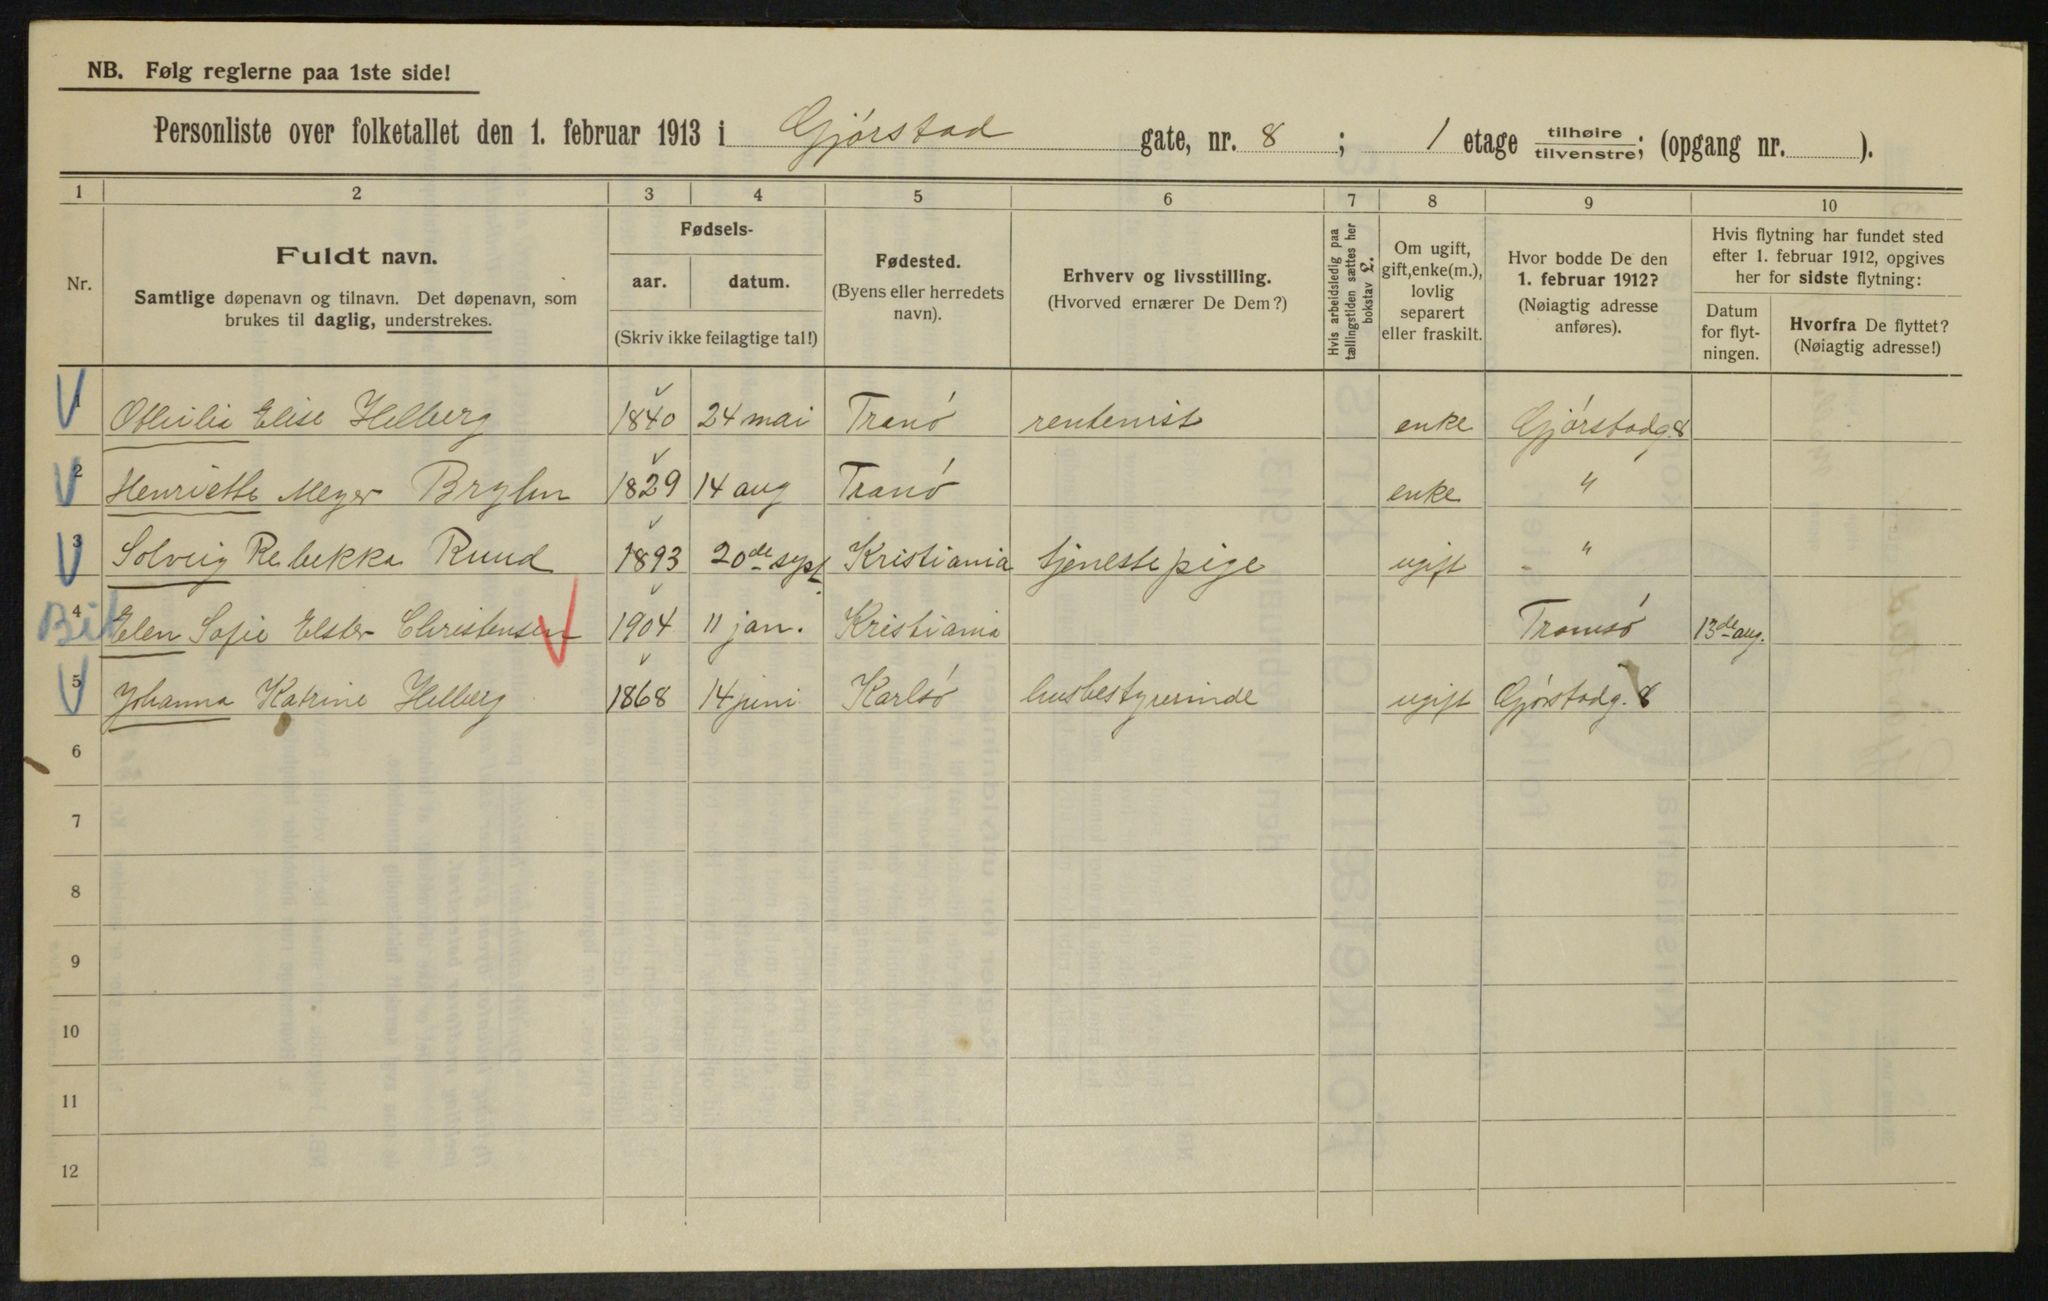 NB. Følg reglerne paa 1ste side!
Personliste over folketallet den 1. februar 1913 i Gjørstad gate, nr. 8 ; 1 etage tilhøire tilvenstre; (opgang nr. ).
1 2 3 4 5 6 7 8 9 10
Nr.
Fuldt navn.
Samtlige døpenavn og tilnavn. Det døpenavn, som
brukes til daglig, understrekes.
Fødsels-
aar. datum.
(Skriv ikke feilagtige tal!)
Fødested.
(Byens eller herredets
navn).
Erhverv og livsstilling.
(Hvorved ernærer De Dem?)
Hvis arbeidsledig paa
tællingstiden sættes her
bokstav L.
Om ugift,
gift, enke(m.),
lovlig
separert
eller fraskilt.
Hvor bodde De den
1. februar 1912?
(Nøiagtig adresse
anføres).
Hvis flytning har fundet sted
efter 1. februar 1912, opgives
her for sidste flytning:
Datum
for flyt-
ningen.
Hvorfra De flyttet?
(Nøiagtig adresse!)
1 Othilia Elise Helberg 1840 24 mai Tranö rentenist enke Gjörstadg. 8
2 Henriette Meyer Brylin 1829 14 aug Tranö enke "
3 Solveig Rebekka Ruud 1893 20de sept. Kristiania tjenestepige ugift "
4 Elen Sofie Elster Christensen 1904 11 jan. Kristiania Tromsö 13de aug.
5 Johanna Katrine Helberg 1868 14 juni Karlsö husbestyrerinde ugift Gjörstadg. 8
6
7
8
9
10
11
12